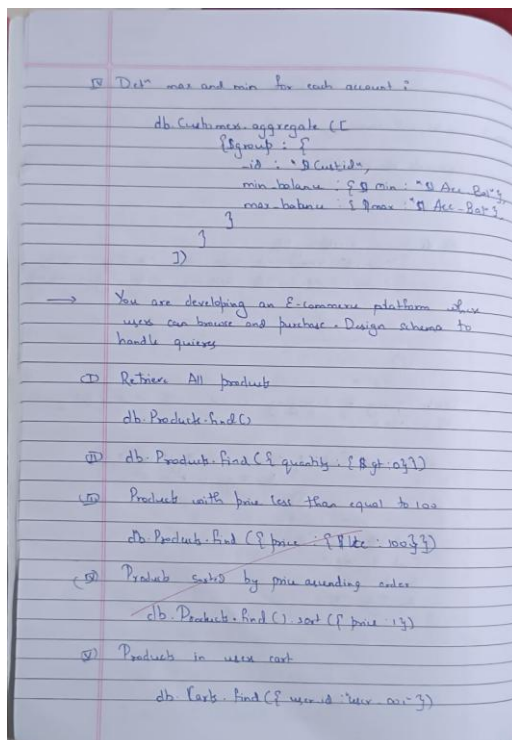 IV Detn max and min for each account :
db.Customers.aggregate ([
{$group : {
_id : "$Custid",
min_balance : { $min : "$ Acc_Bal"},
max_balance : { $max : "$ Acc_Bal"}
}
}
])
→ You are developing an E-commerce platform where
users can browse and purchase. Design schema to
handle quieres
I Retrieve All products
db.Products.find()
II db.Products.find({ quantity : {$gt:0}})
III Products with price less than equal to 100
db.Products.find ({ price : {$lte : 100}})
IV Products sorted by price ascending order
db.Products.find().sort({ price : 1})
V Products in users cart
db.Carts.find({ user_id :